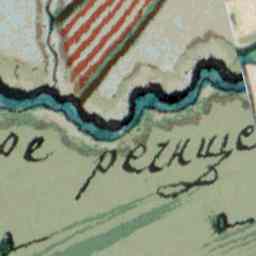 ре речище